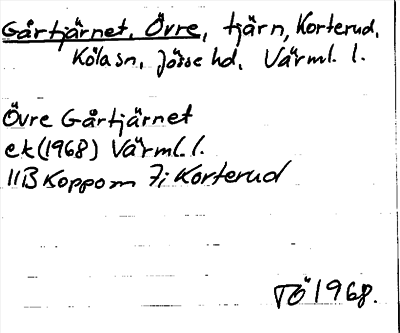 Gårtjärnet, Övre, tjärn, Korterud,
Köla sn, Jösse hd, Värml. l.
Övre Gårtjärnet
ek (1968) Värml. l.
11B Koppom 7i Korterud
TÖ 1968.